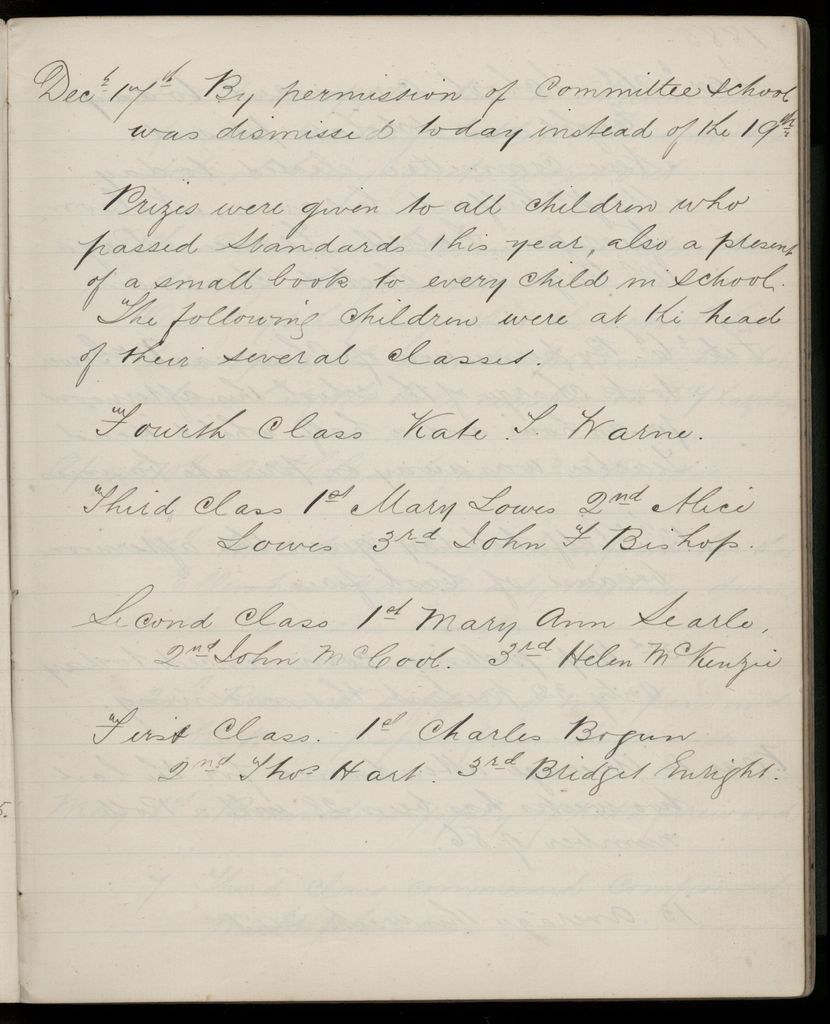 Decr 17th By permission of Committee School
was dismissed today instead of the 19th
Prizes were given to all children who
passed Standards this year, also a present
of a small book to every child in School.
The following children were at the head
of their several classes.
Fourth Class Kate S. Warne.
Third Class 1st Mary Lowes 2nd Alice
Lowes 3rd John F Bishop.
Second Class 1st Mary Ann Searle,
2nd John McCool. 3rd Helen McKenzie
First Class. 1st Charles Bogun
2nd Thos Hart. 3rd Bridget Enright.